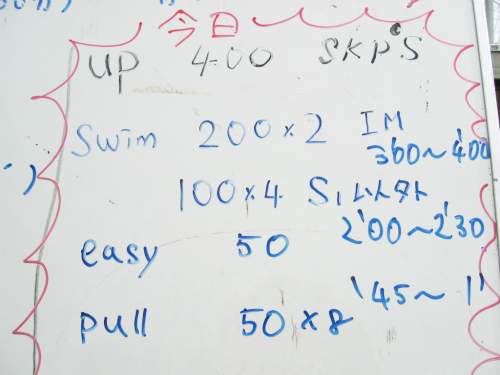 今日
up 400 SKPS
Swim 200×2 IM
3'00~4'00
100×4 S1
2'00~2'30
easy 50
'45~1'
pull 50×8